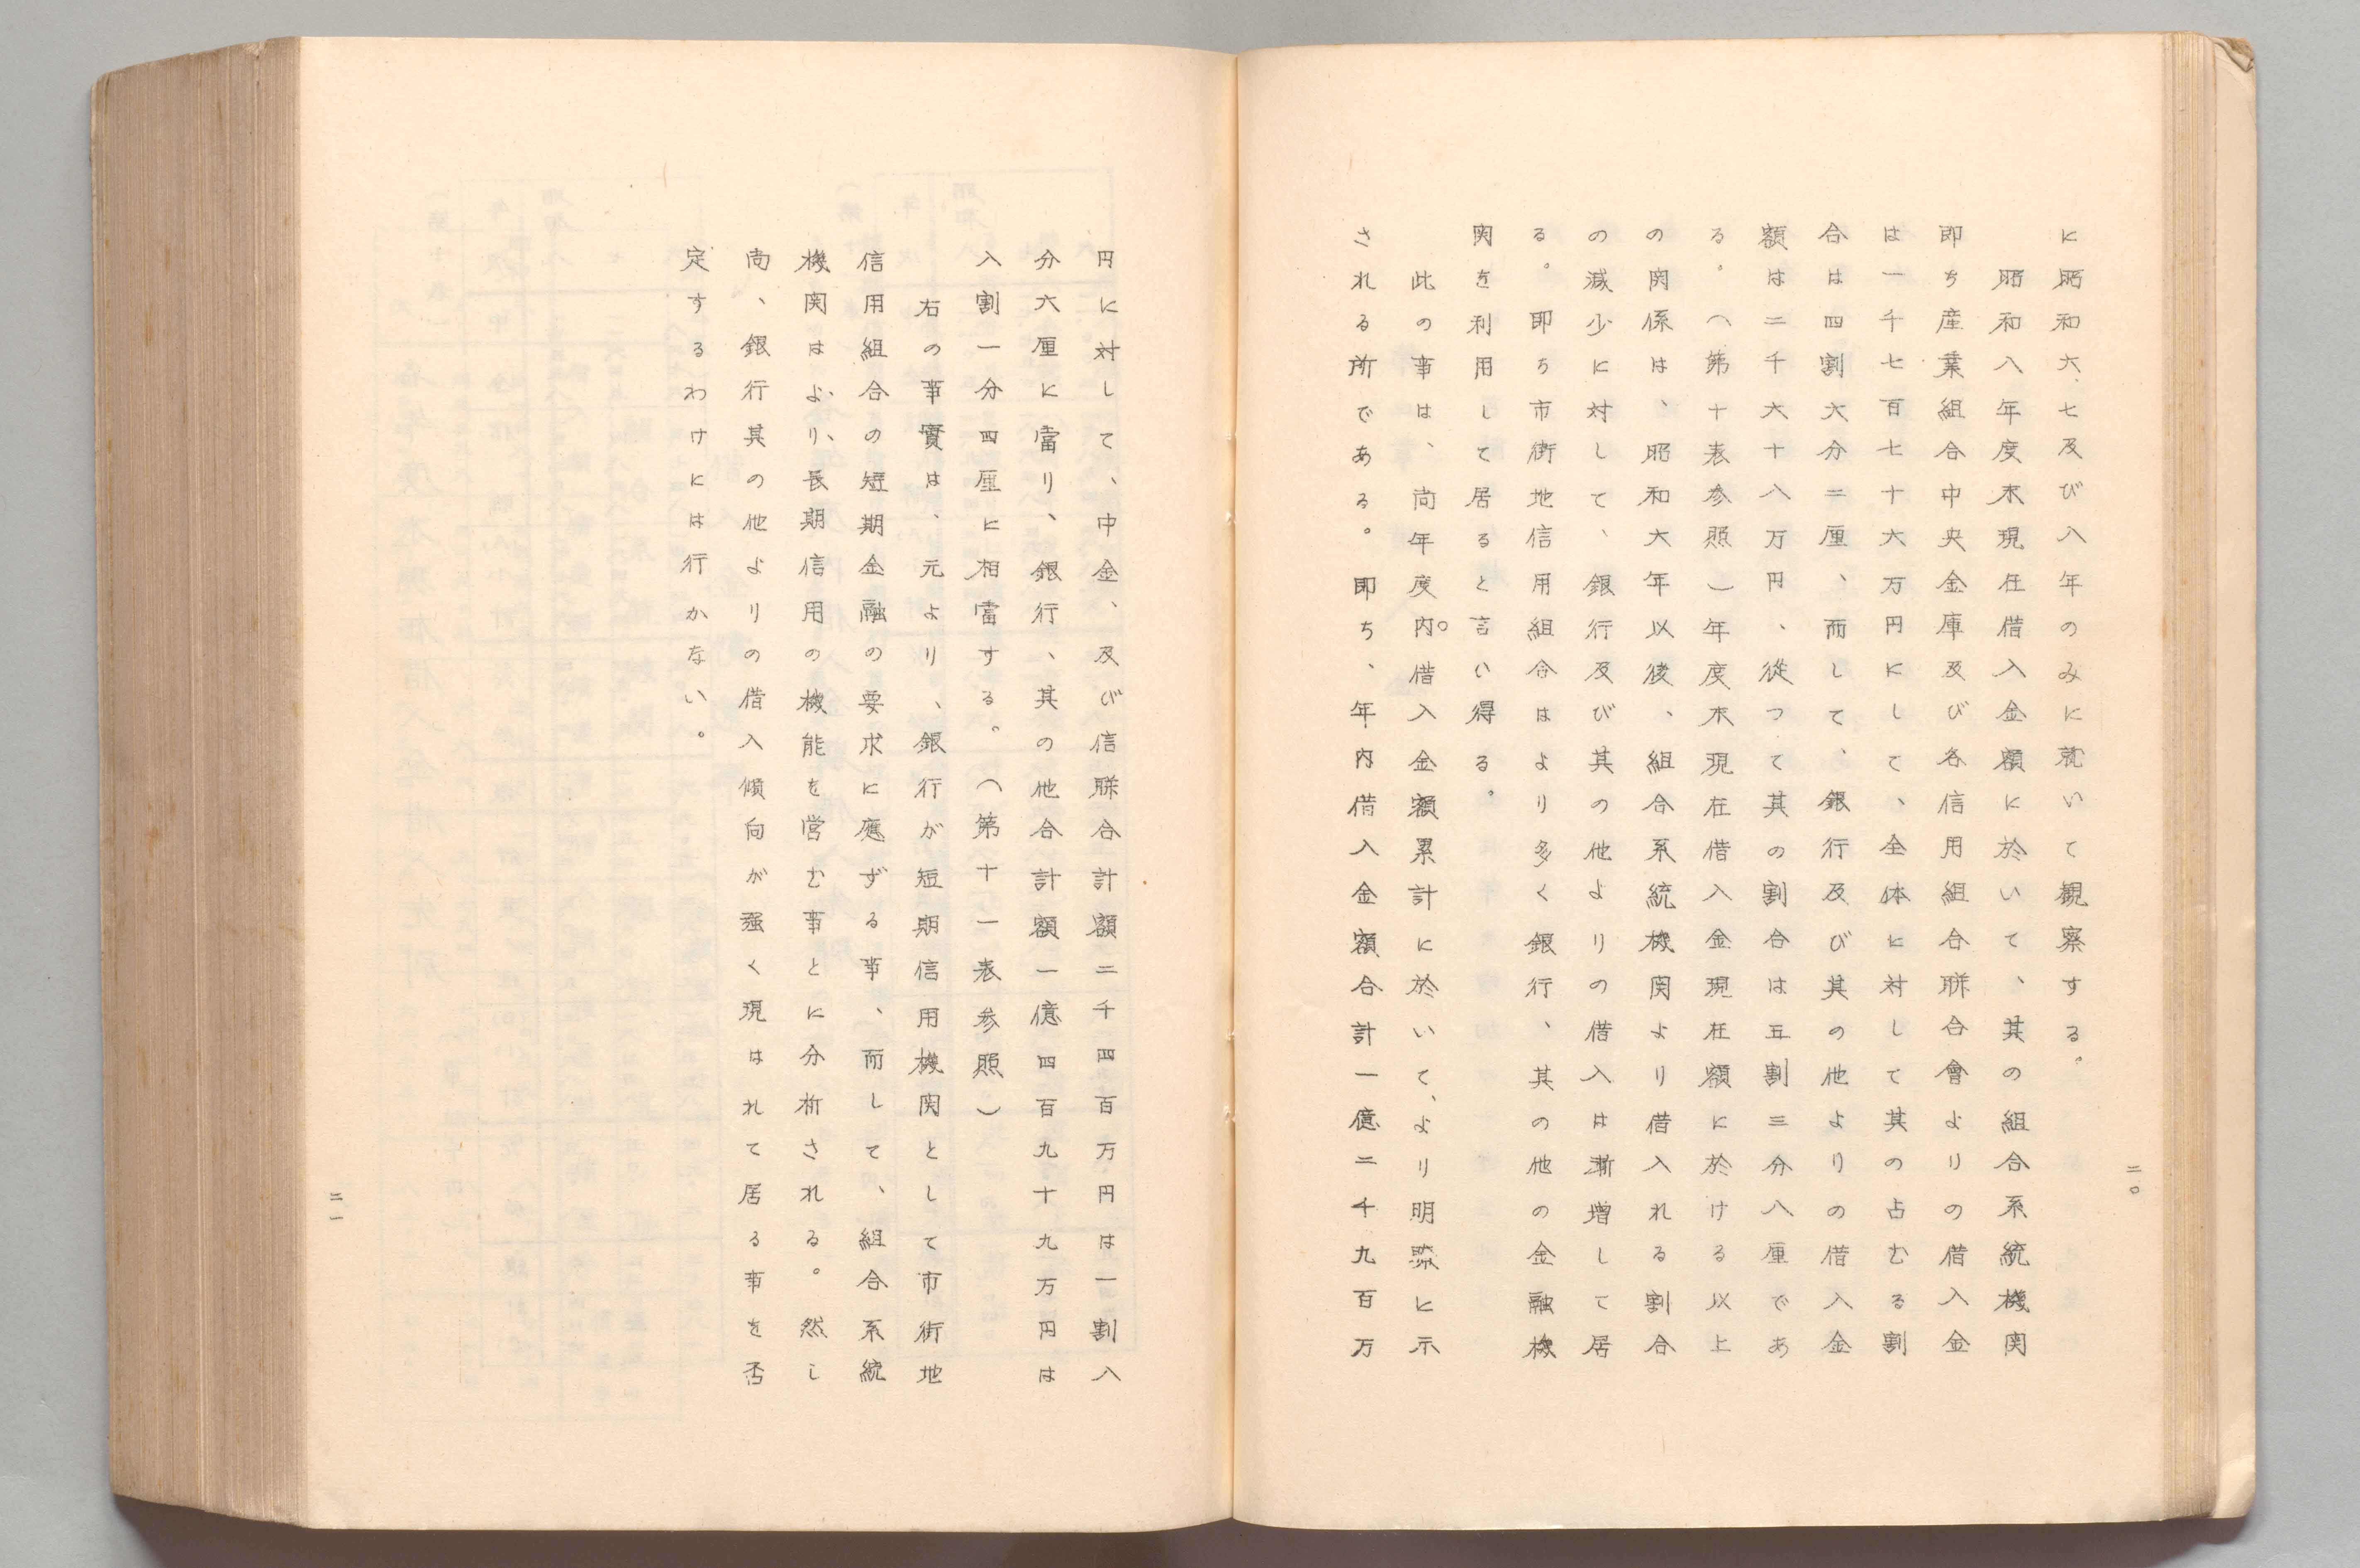 に昭和六、七及び八年のみに就いて観察する。
昭和八年度末現在借入金額に於いて、其の組合系統機関
即ち産業組合中央金庫及び各信用組合聯合會よりの借入金
は一千七百七十六万円にして、全体に対して其の占むる割
合は四割六分二厘、而して、銀行及び其の他よりの借入金
額は二千六十八万円、従つて其の割合は五割三分八厘であ
る。（第十表参照）年度末現在借入金現在額に於ける以上
の関係は、昭和六年以後、組合系統機関より借入れる割合
の減少に対して、銀行及び其の他よりの借入は漸増して居
る。即ち市街地信用組合はより多く銀行、其の他の金融機
関を利用して居ると言い得る。
此の事は、尚年度内。借入金額累計に於いて、より明瞭に示
される所である。即ち、年内借入金額合計一億二千九百万
二〇
円に対して、中金、及び信聯合計額二千四百万円は一割八
分六厘に當り、銀行、其の他合計額一億四百九十九万円は
八割一分四厘に相當する。（第十一表参照）
右の事實は、元より、銀行が短期信用機関として市街地
信用組合の短期金融の要求に應ずる事、而して、組合系統
機関はより、長期信用の機能を営む事とに分析される。然し
尚、銀行其の他よりの借入傾向が強く現はれて居る事を否
定するわけには行かない。
二一